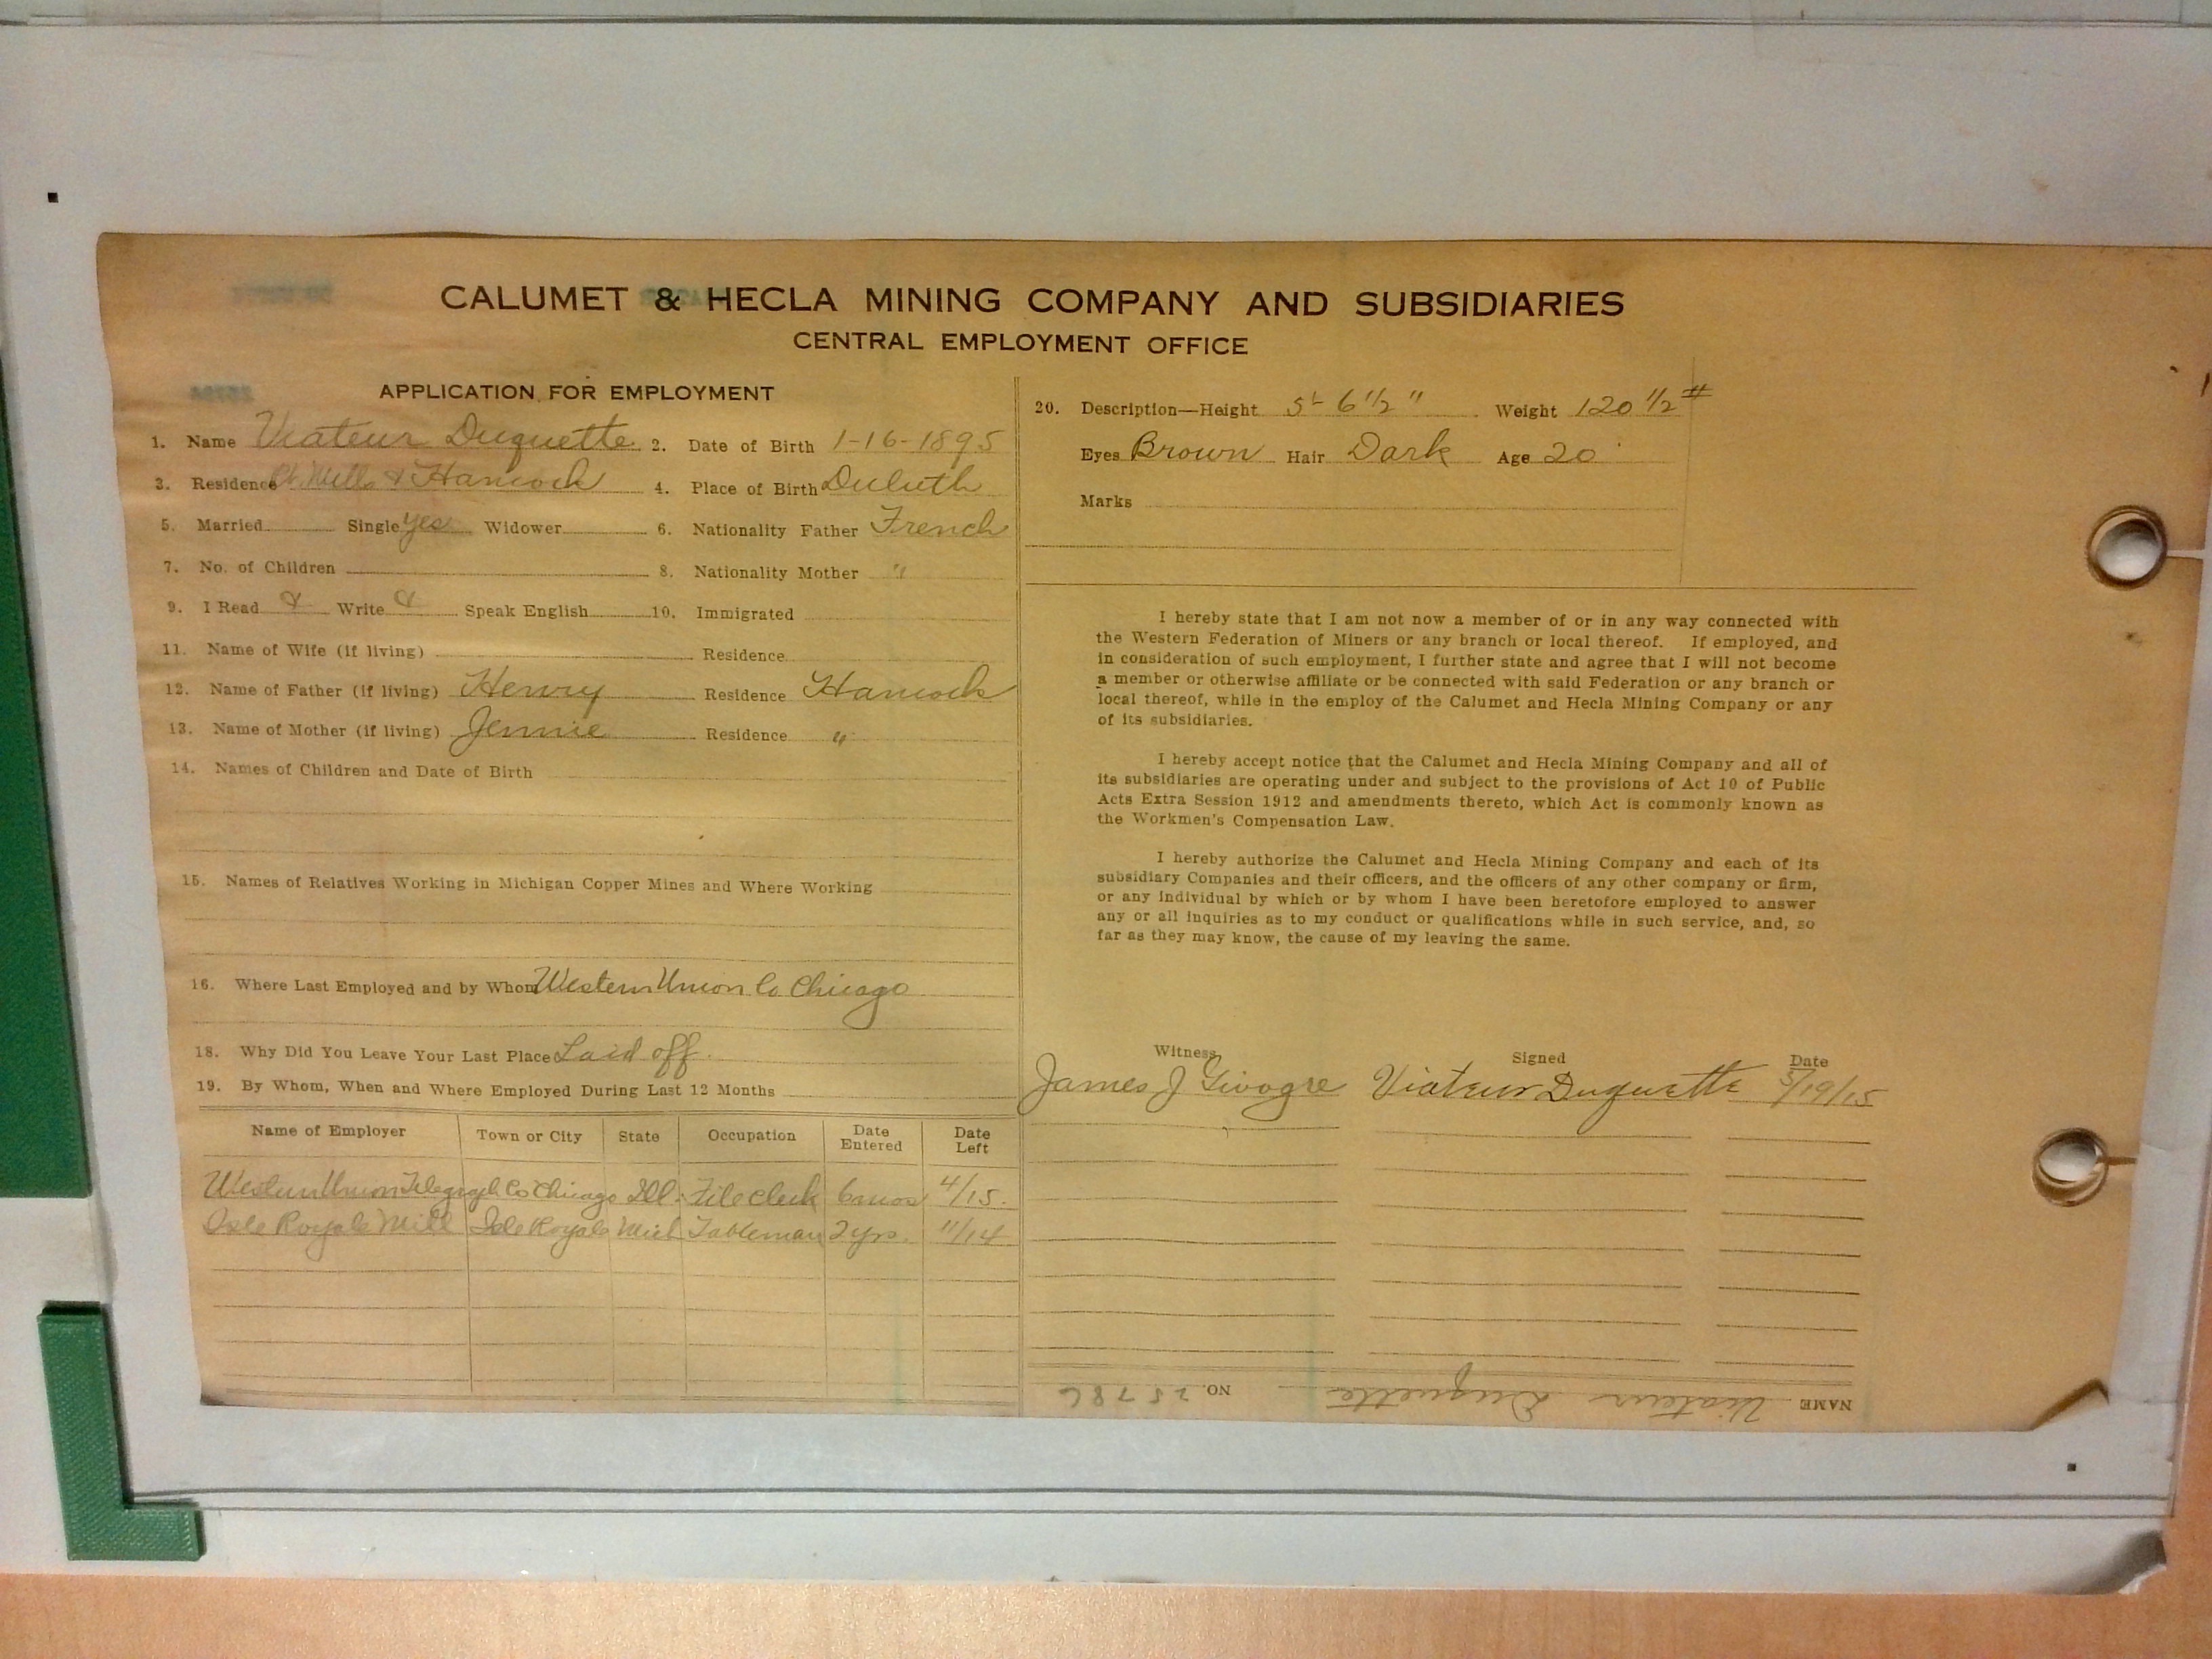 CALUMET & HECLA MINING COMPANY AND SUBSIDIARIES
CENTRAL EMPLOYMENT OFFICE
APPLICATION FOR EMPLOYMENT
1. Name Viateur Duquette 2. Date of Birth 1-16-1895
3. Residence Mills & Hancock 4. Place of Birth Duluth
5. Married Single yes Widower 6. Nationality Father French
7. No. of Children 8. Nationality Mother "
9. I Read Write Speak English 10. Immigrated
11. Name of Wife (if living) Residence
12. Name of Father (if living) Henry Residence Hancock
13. Name of Mother (if living) Jennie Residence "
14. Names of Children and Date of Birth
15. Names of Relatives Working in Michigan Copper Mines and Where Working
16. Where Last Employed and by Whom Western Union Co Chicago
18. Why Did You Leave Your Last Place Laid off.
19. By Whom, When and Where Employed During Last 12 Months
Name of Employer Town or City State Occupation Date Entered Date Left
Western Union Telegraph Co Chicago Ill. File clerk 6 mos 4/15.
Isle Royale Mill Isle Royale Mich Tableman 2 yrs. 11/14
20. Description—Height 5' 6 1/2" Weight 120 1/2 #
Eyes Brown Hair Dark Age 20
Marks
I hereby state that I am not now a member of or in any way connected with
the Western Federation of Miners or any branch or local thereof. If employed, and
in consideration of such employment, I further state and agree that I will not become
a member or otherwise affiliate or be connected with said Federation or any branch or
local thereof, while in the employ of the Calumet and Hecla Mining Company or any
of its subsidiaries.
I hereby accept notice that the Calumet and Hecla Mining Company and all of
its subsidiaries are operating under and subject to the provisions of Act 10 of Public
Acts Extra Session 1912 and amendments thereto, which Act is commonly known as
the Workmen's Compensation Law.
I hereby authorize the Calumet and Hecla Mining Company and each of its
subsidiary Companies and their officers, and the officers of any other company or firm,
or any individual by which or by whom I have been heretofore employed to answer
any or all inquiries as to my conduct or qualifications while in such service, and, so
far as they may know, the cause of my leaving the same.
Witness Signed Date
James J Viateur Duquette 5/19/15
NAME Viateur Duquette NO. 25786